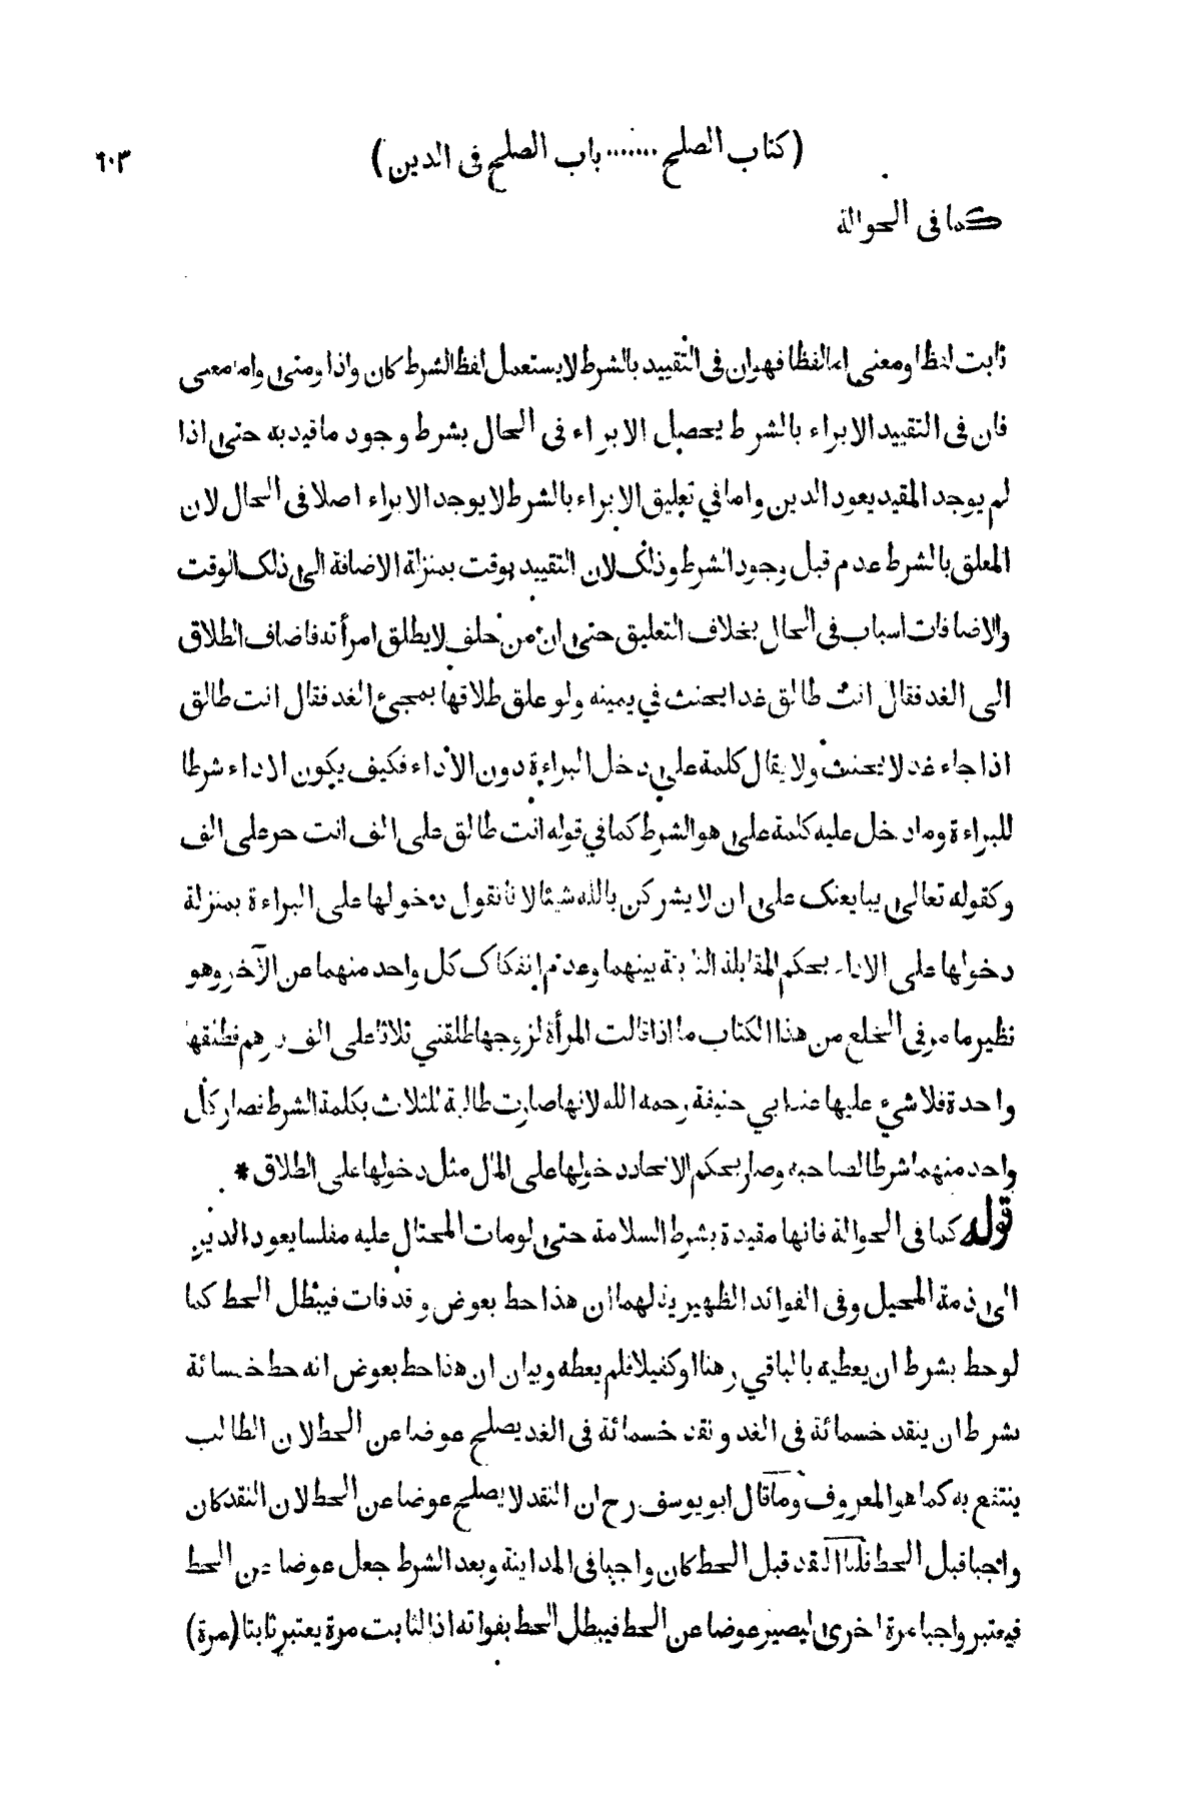 (كتاب الصلح ....... باب الصلح فى الدين) ٦٠٣
كما فى الحوالة
ثابت لفظا ومعنى اما لفظا فهو ان فى التقييد بالشرط لا يستعمل لفظ الشرط كان واذا ومتى واما معنى
فان فى التقييد الابراء بالشرط يحصل الابراء فى الحال بشرط وجود ما قيد به حتى اذا
لم يوجد المقيد يعود الدين واما في تعليق الابراء بالشرط لا يوجد الابراء اصلا فى الحال لان
المعلق بالشرط عدم قبل وجود الشرط وذلك لان التقييد بوقت بمنزلة الاضافة الى ذلك الوقت
والاضافات اسباب فى الحال بخلاف التعليق حتى ان من حلف لا يطلق امرأته فاضاف الطلاق
الى الغد فقال انت طالق غدا يحنث في يمينه ولو علق طلاقها بمجئ الغد فقال انت طالق
اذا جاء غد لا يحنث ولا يقال كلمة على دخل البراءة دون الاداء فكيف يكون الاداء شرطا
للبراءة وما دخل عليه كلمة على هو الشرط كما في قوله انت طالق على الف انت حر على الف
وكقوله تعالى يبايعنك على ان لا يشركن بالله شيئا لانا نقول دخولها على البراءة بمنزلة
دخولها على الاداء بحكم المقابلة الثابتة بينهما وعدم انفكاك كل واحد منهما عن الآخر وهو
نظير ما مر فى الخلع من هذا الكتاب ما اذا قالت المرأة لزوجها طلقني ثلاثا على الف درهم فطلقها
واحدة فلا شيء عليها عند ابي حنيفة رحمه الله لانها صارت طالبة للثلاث بكلمة الشرط فصار كل
واحد منهما شرطا لصاحبه وصار بحكم الاتحاد دخولها على المال مثل دخولها على الطلاق *
قوله كما فى الحوالة فانها مقيدة بشرط السلامة حتى لو مات المحتال عليه مفلسا يعود الدين
الى ذمة المحيل وفى الفوائد الظهيرية لهما ان هذا حط بعوض وقد فات فيبطل الحط كما
لو حط بشرط ان يعطيه بالباقي رهنا او كفيلا فلم يعطه وبيان ان هذا حط بعوض انه حط خمسمائة
بشرط ان ينقد خسمائة فى الغد ونقد خسمائة فى الغد يصلح عوضا عن الحط لان الطالب
ينتفع به كما هو المعروف وما قال ابو يوسف رح ان النقد لا يصلح عوضا عن الحط لان النقد كان
واجبا قبل الحط قلنا النقد قبل الحط كان واجبا فى المداينة وبعد الشرط جعل عوضا عن الحط
فيعتبر واجبا مرة اخرى ليصير عوضا عن الحط فيبطل الحط بفواته اذ الثابت مرة يعتبر ثابتا (مرة)